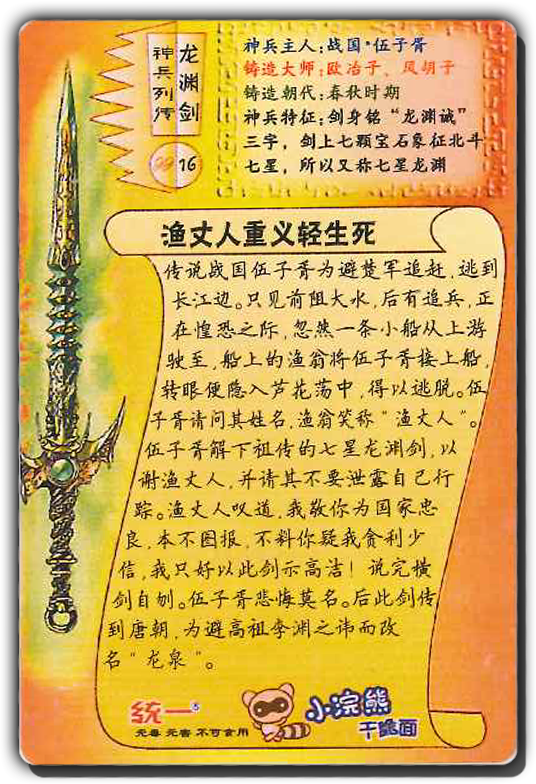 神兵列传
龙渊剑
99 16
神兵主人:战国·伍子胥
铸造大师:欧冶子、风胡子
铸造朝代:春秋时期
神兵特征:剑身铭“龙渊诚”
三字,剑上七颗宝石象征北斗
七星,所以又称七星龙渊
渔丈人重义轻生死
传说战国伍子胥为避楚军追赶,逃到
长江边。只见前阻大水,后有追兵,正
在惶恐之际,忽然一条小船从上游
驶至,船上的渔翁将伍子胥接上船,
转眼便隐入芦花荡中,得以逃脱。伍
子胥请问其姓名,渔翁笑称“渔丈人”。
伍子胥解下祖传的七星龙渊剑,以
谢渔丈人,并请其不要泄露自己行
踪。渔丈人叹道,我敬你为国家忠
良,本不图报,不料你疑我贪利少
信,我只好以此剑示高洁!说完横
剑自刎。伍子胥悲悔莫名。后此剑传
到唐朝,为避高祖李渊之讳而改
名“龙泉”。
统一®
无毒 无害 不可食用
小浣熊
干脆面